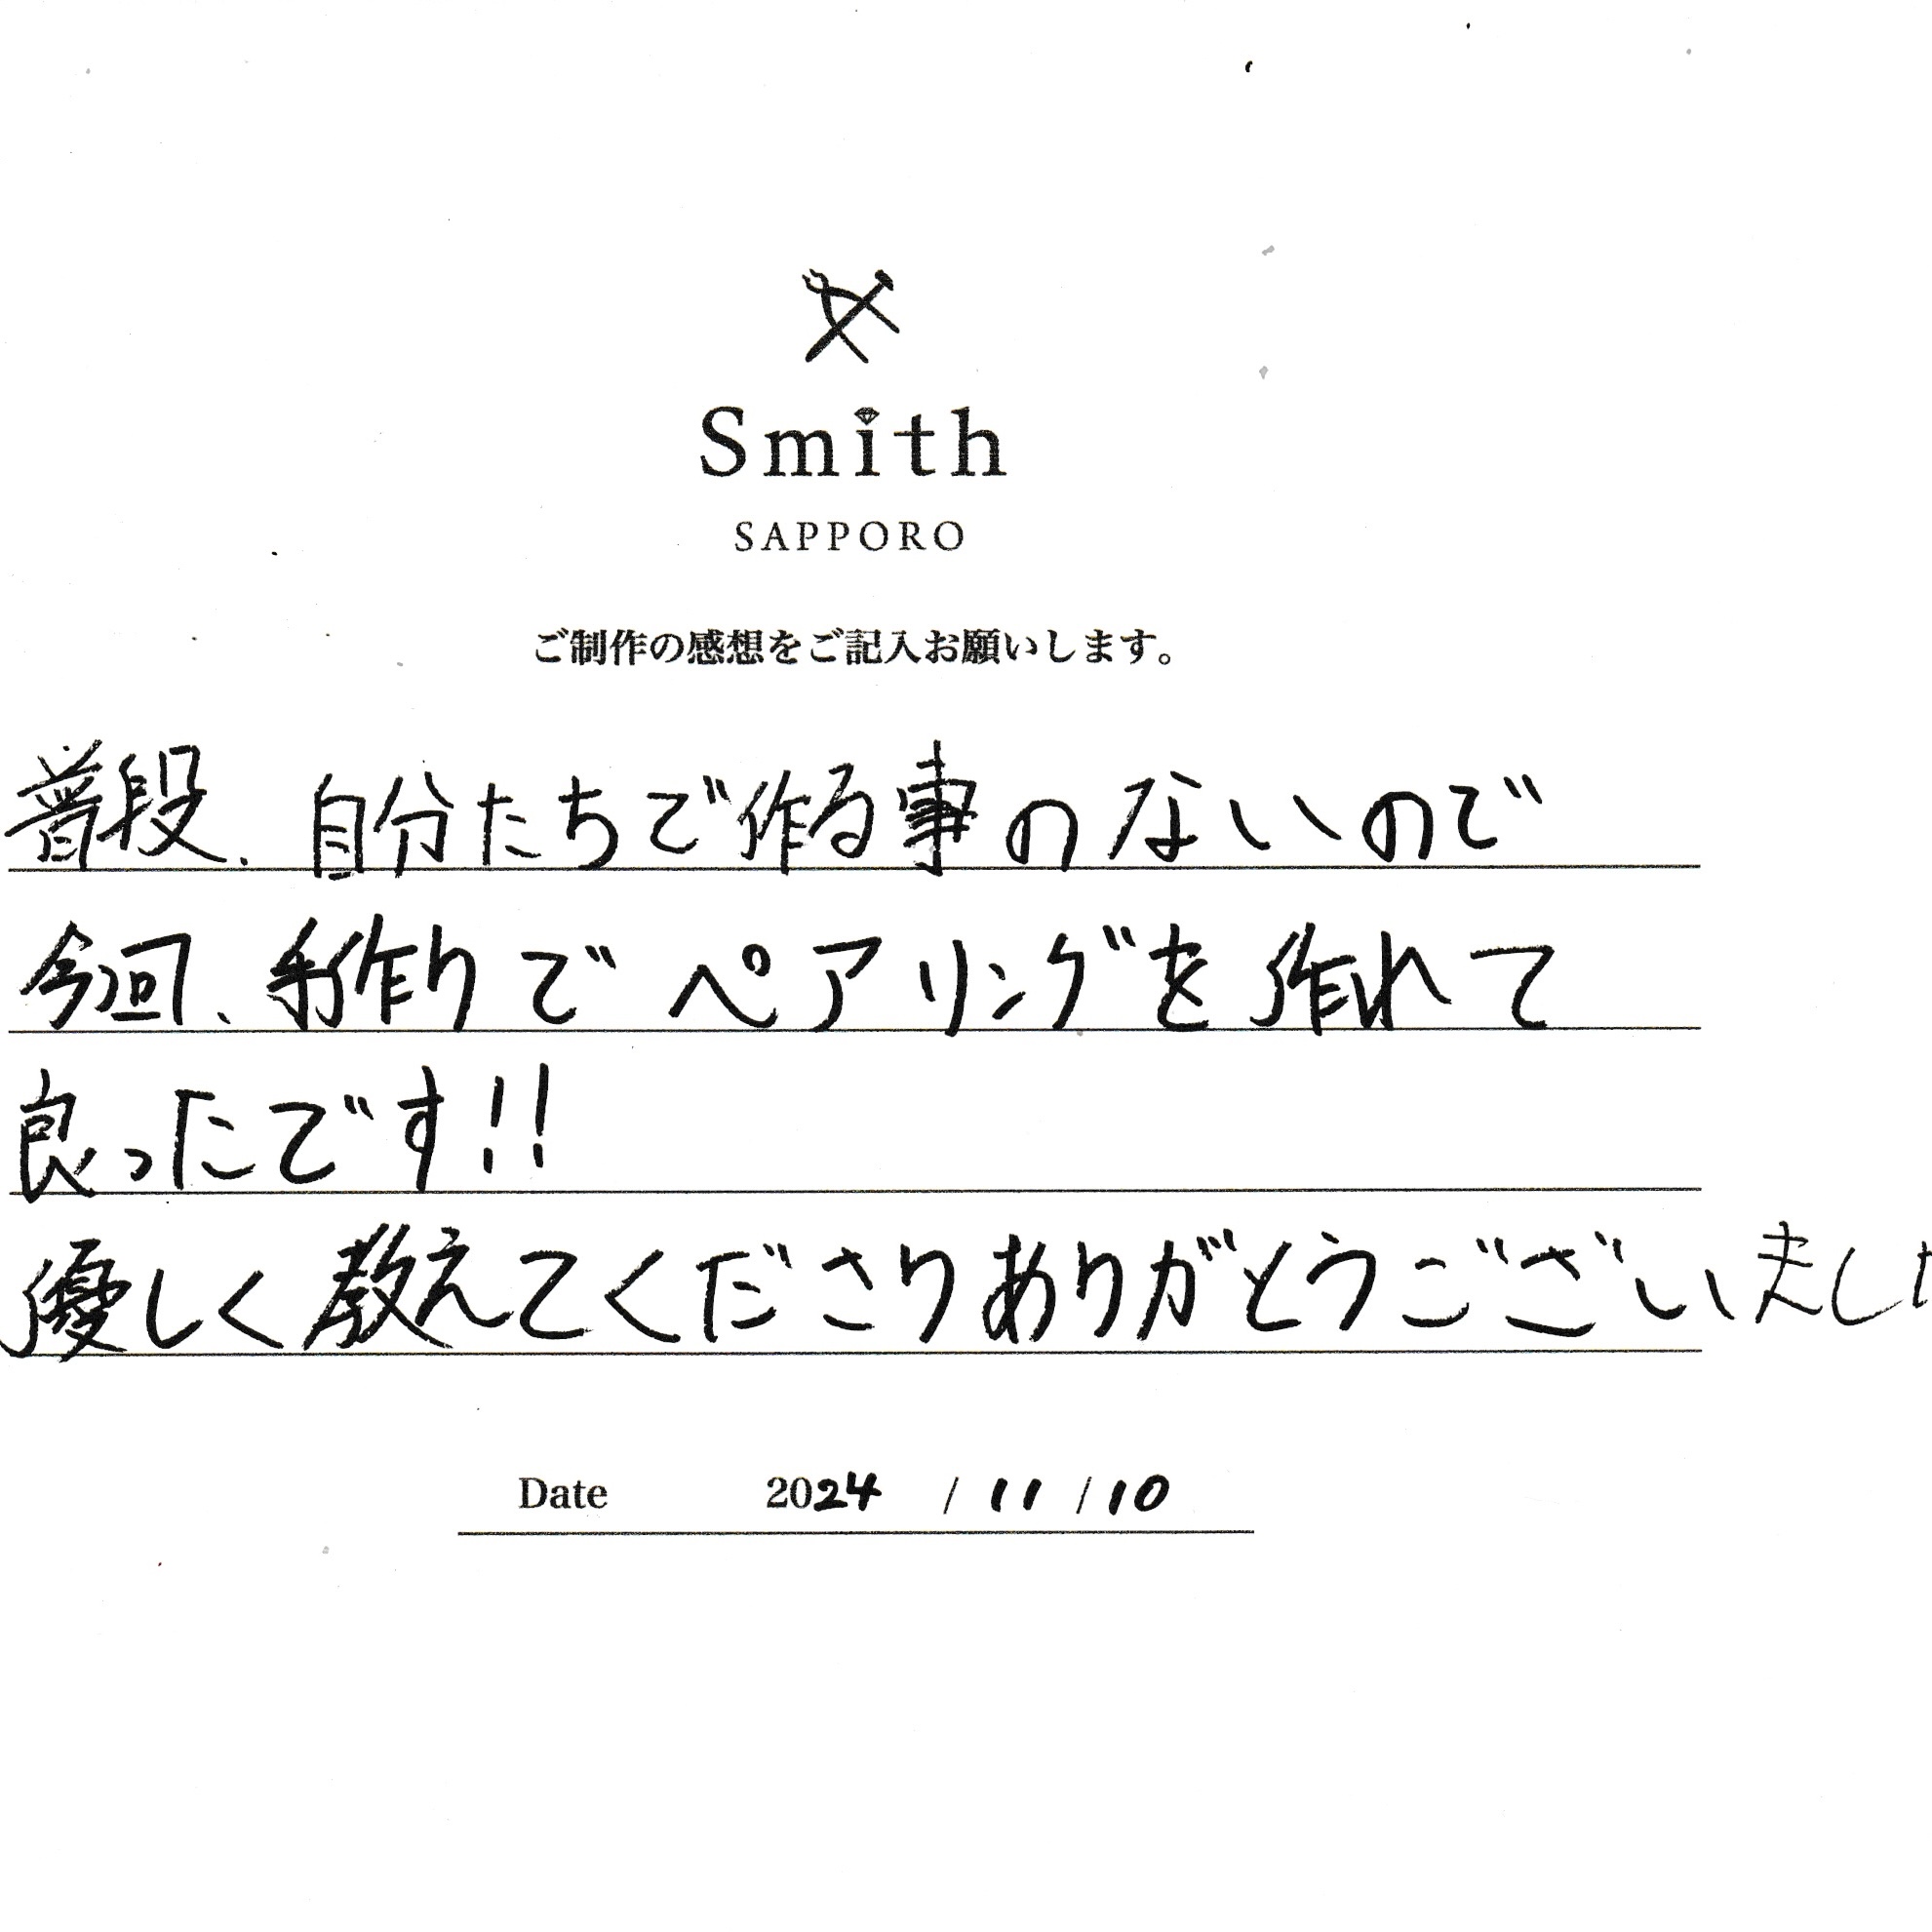 Smith
SAPPORO
ご制作の感想をご記入お願いします。
普段、自分たちで作る事のないので
今回、手作りでペアリングを作れて
良ったです!!
優しく教えてくださりありがとうございまし
Date 2024 / 11 / 10